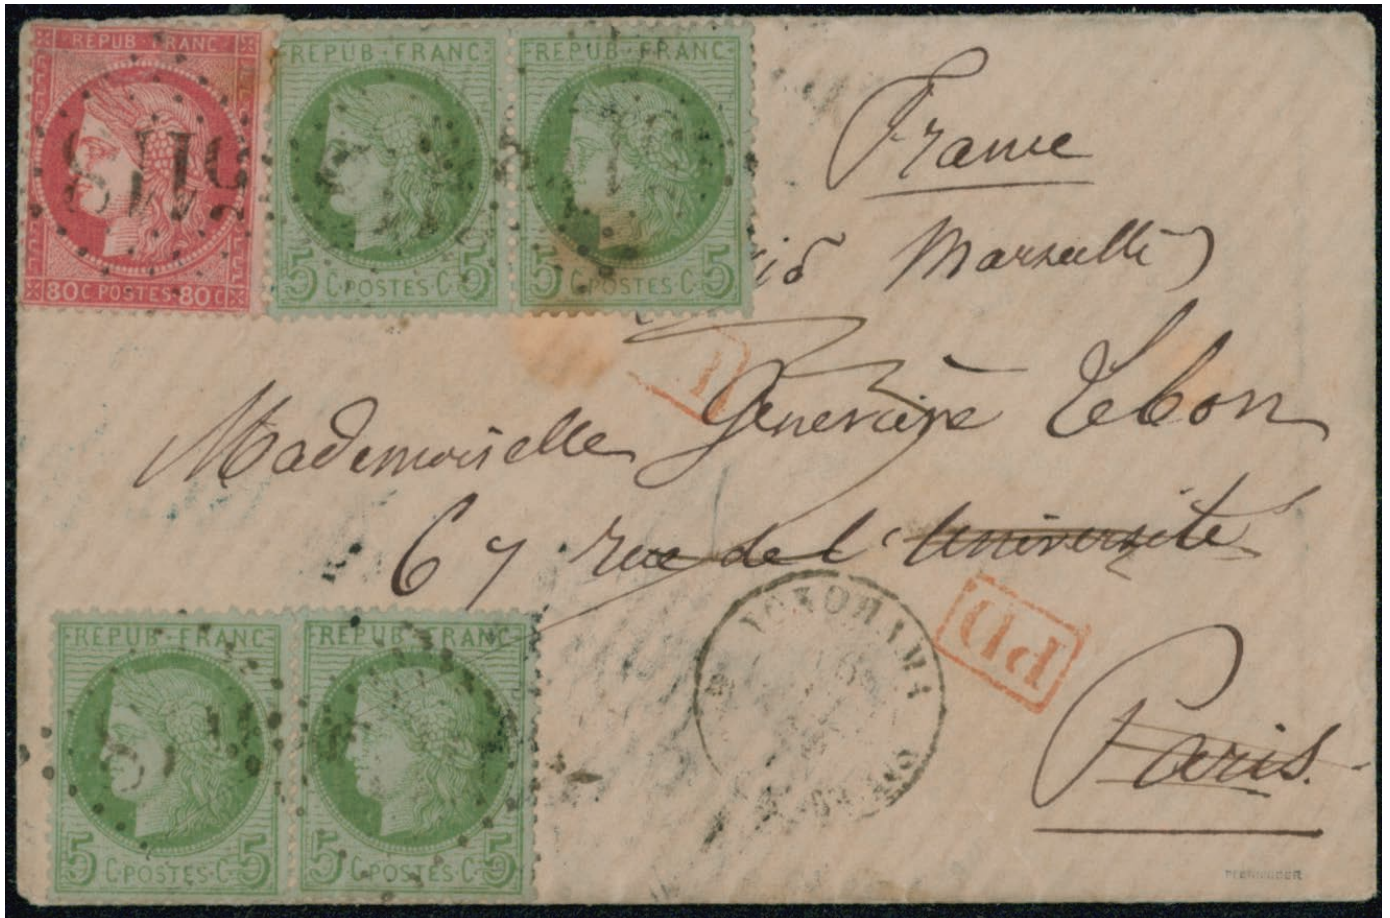 REPUB·FRANC
80C POSTES·80C
5118
REPUB·FRANC
5 C·POSTES·C·5
REPUB·FRANC
5 C·POSTES·C·5
France
Marseille
Mademoiselle Geneviève Lebon
67 rue de l'Université
PD
Paris.
YOKOHAMA
REPUB·FRANC
5 C·POSTES·C·5
REPUB·FRANC
5 C·POSTES·C·5